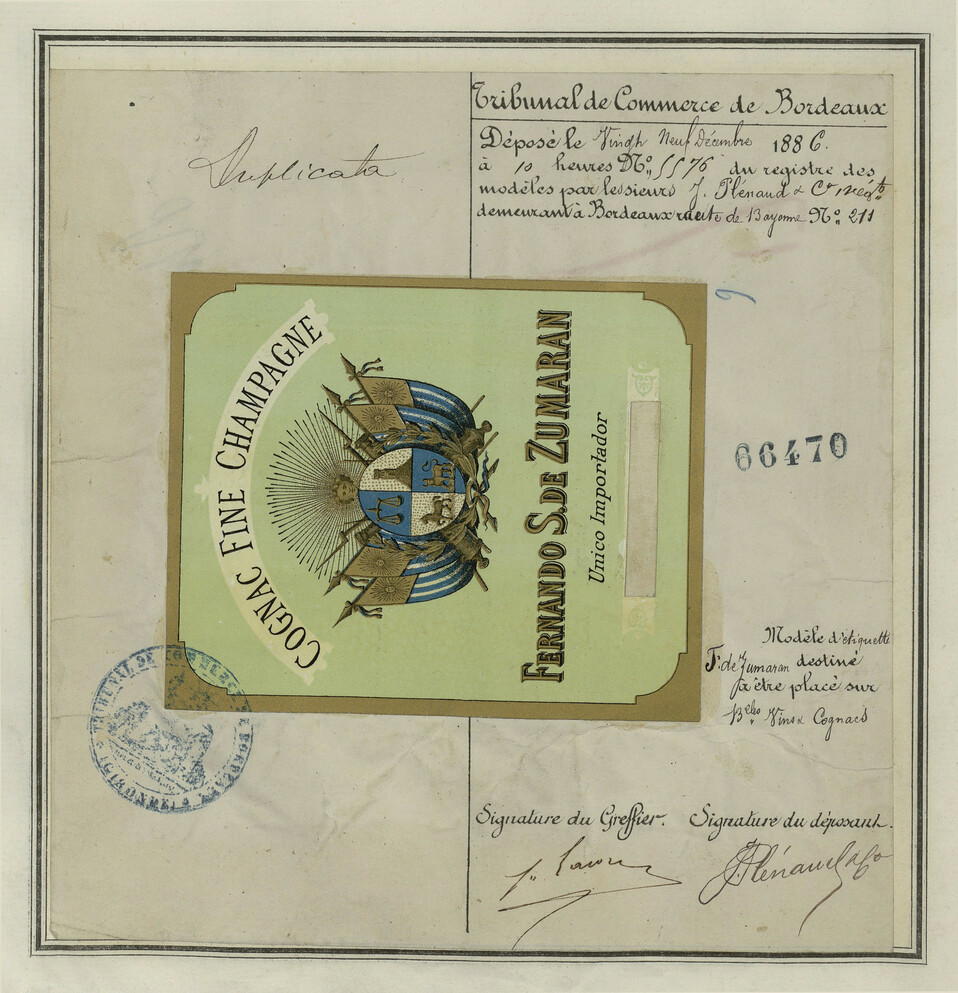 Duplicata
Tribunal de Commerce de Bordeaux
Déposé le Vingt Neuf Décembre 1886.
à 10 heures No. 5576 du registre des
modèles par les sieurs J. Plénaud & Cie négts
demeurant à Bordeaux route de Bayonne No. 211
9
COGNAC FINE CHAMPAGNE
FERNANDO S. DE ZUMARAN
Unico Importador
66470
Modèle d'étiquette
F. de Zumaran destiné
à être placé sur
Blles Vins & Cognacs
TRIBUNAL DE COMMERCE DE BORDEAUX
Signature du Greffier. Signature du déposant.
J. Plénaud & Co